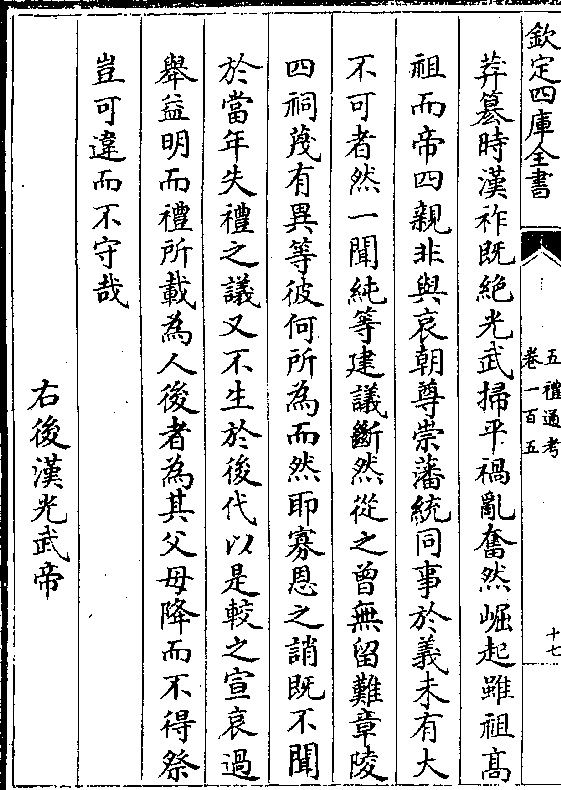 欽定四庫全書
五禮通考
卷一百五
十七
莽簒時漢祚既絶光武掃平禍亂奮然崛起雖祖髙
祖而帝四親非與哀朝尊崇藩統同事於義未有大
不可者然一聞純等建議斷然從之曾無留難章陵
四祠蔑有異等彼何所為而然耶寡恩之誚既不聞
於當年失禮之議又不生於後代以是較之宣哀過
舉益明而禮所載為人後者為其父母降而不得祭
豈可違而不守哉
右後漢光武帝